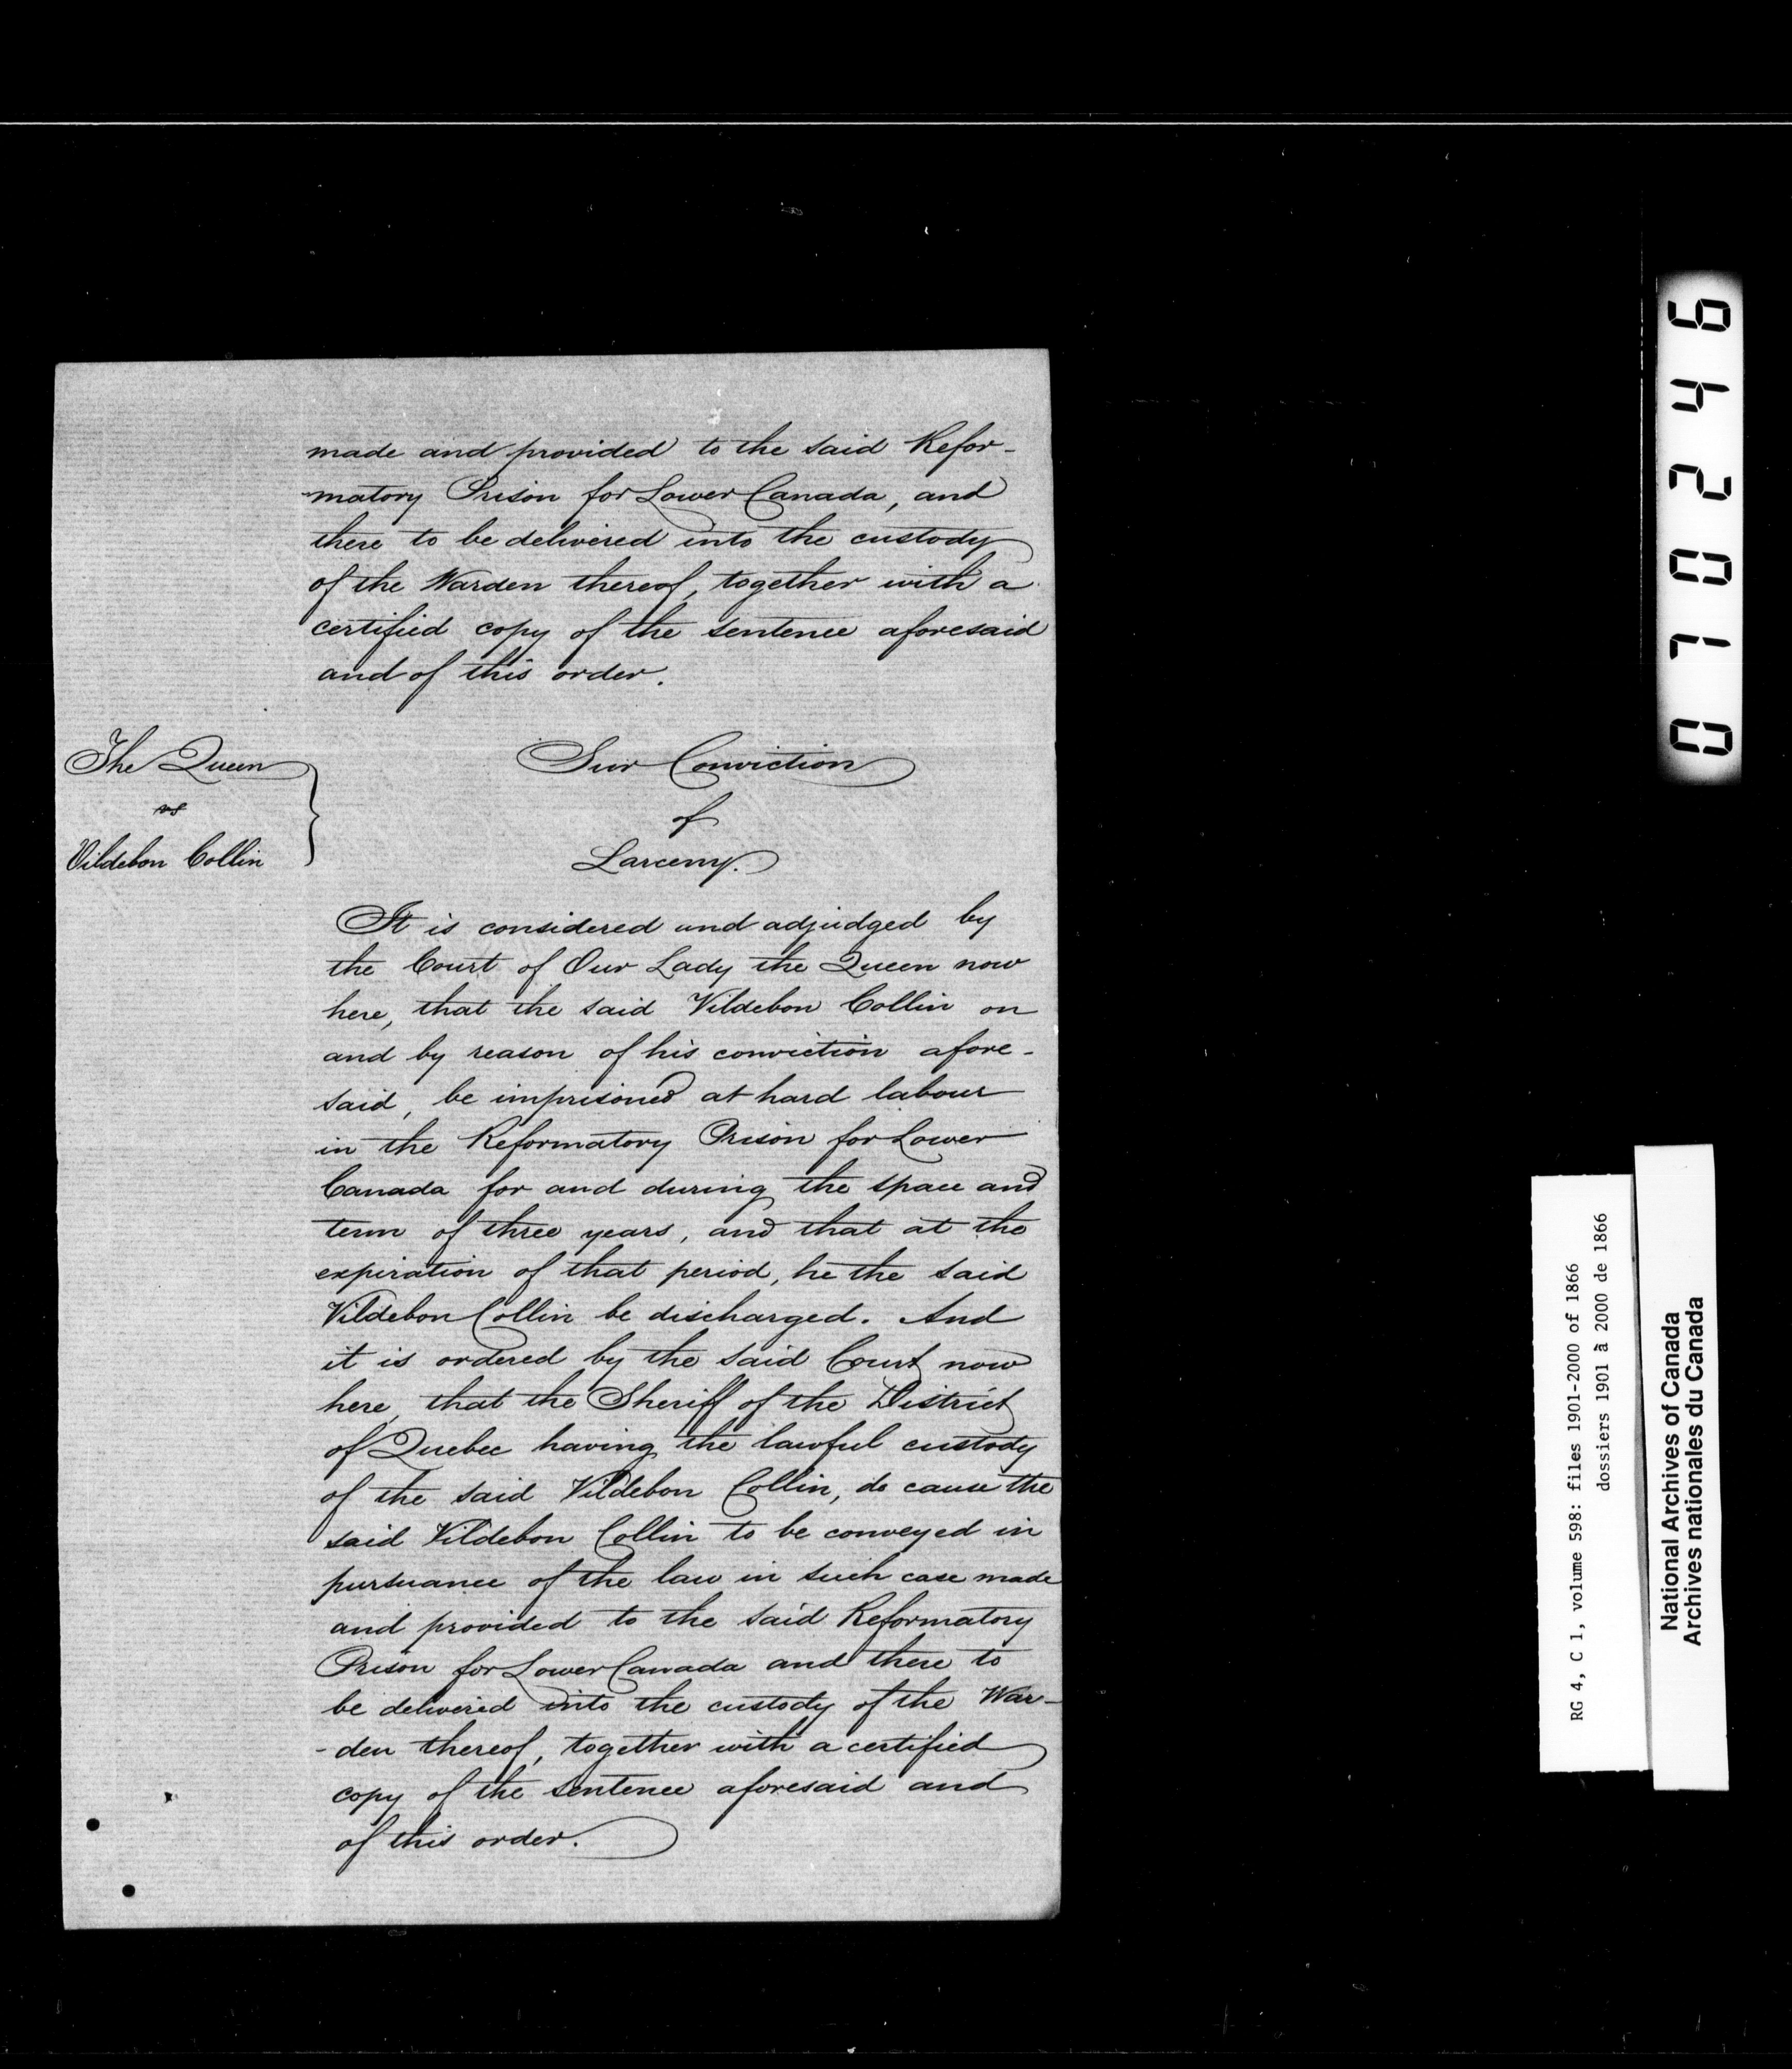 made and provided to the said Refor-
-matory Prison for Lower Canada, and
there to be delivered into the custody
of the Warden thereof, together with a
certified copy of the sentence aforesaid
and of this order.
The Queen
vs
Vildebon Collin
Sur Conviction
of
Larceny.
It is considered and adjudged by
the Court of Our Lady the Queen now
here, that the said Vildebon Collin on
and by reason of his conviction afore-
said, be imprisoned at hard labour
in the Reformatory Prison for Lower
Canada for and during the space and
term of three years, and that at the
expiration of that period, he the said
Vildebon Collin be discharged. And
it is ordered by the said Court now
here, that the Sheriff of the District
of Quebec having the lawful custody
of the said Vildebon Collin, do cause the
said Vildebon Collin to be conveyed in
pursuance of the law in such case made
and provided to the said Reformatory
Prison for Lower Canada and there to
be delivered into the custody of the War-
-den thereof, together with a certified
copy of the sentence aforesaid and
of this order.
070246
RG 4, C 1, volume 598: files 1901-2000 of 1866
dossiers 1901 à 2000 de 1866
National Archives of Canada
Archives nationales du Canada